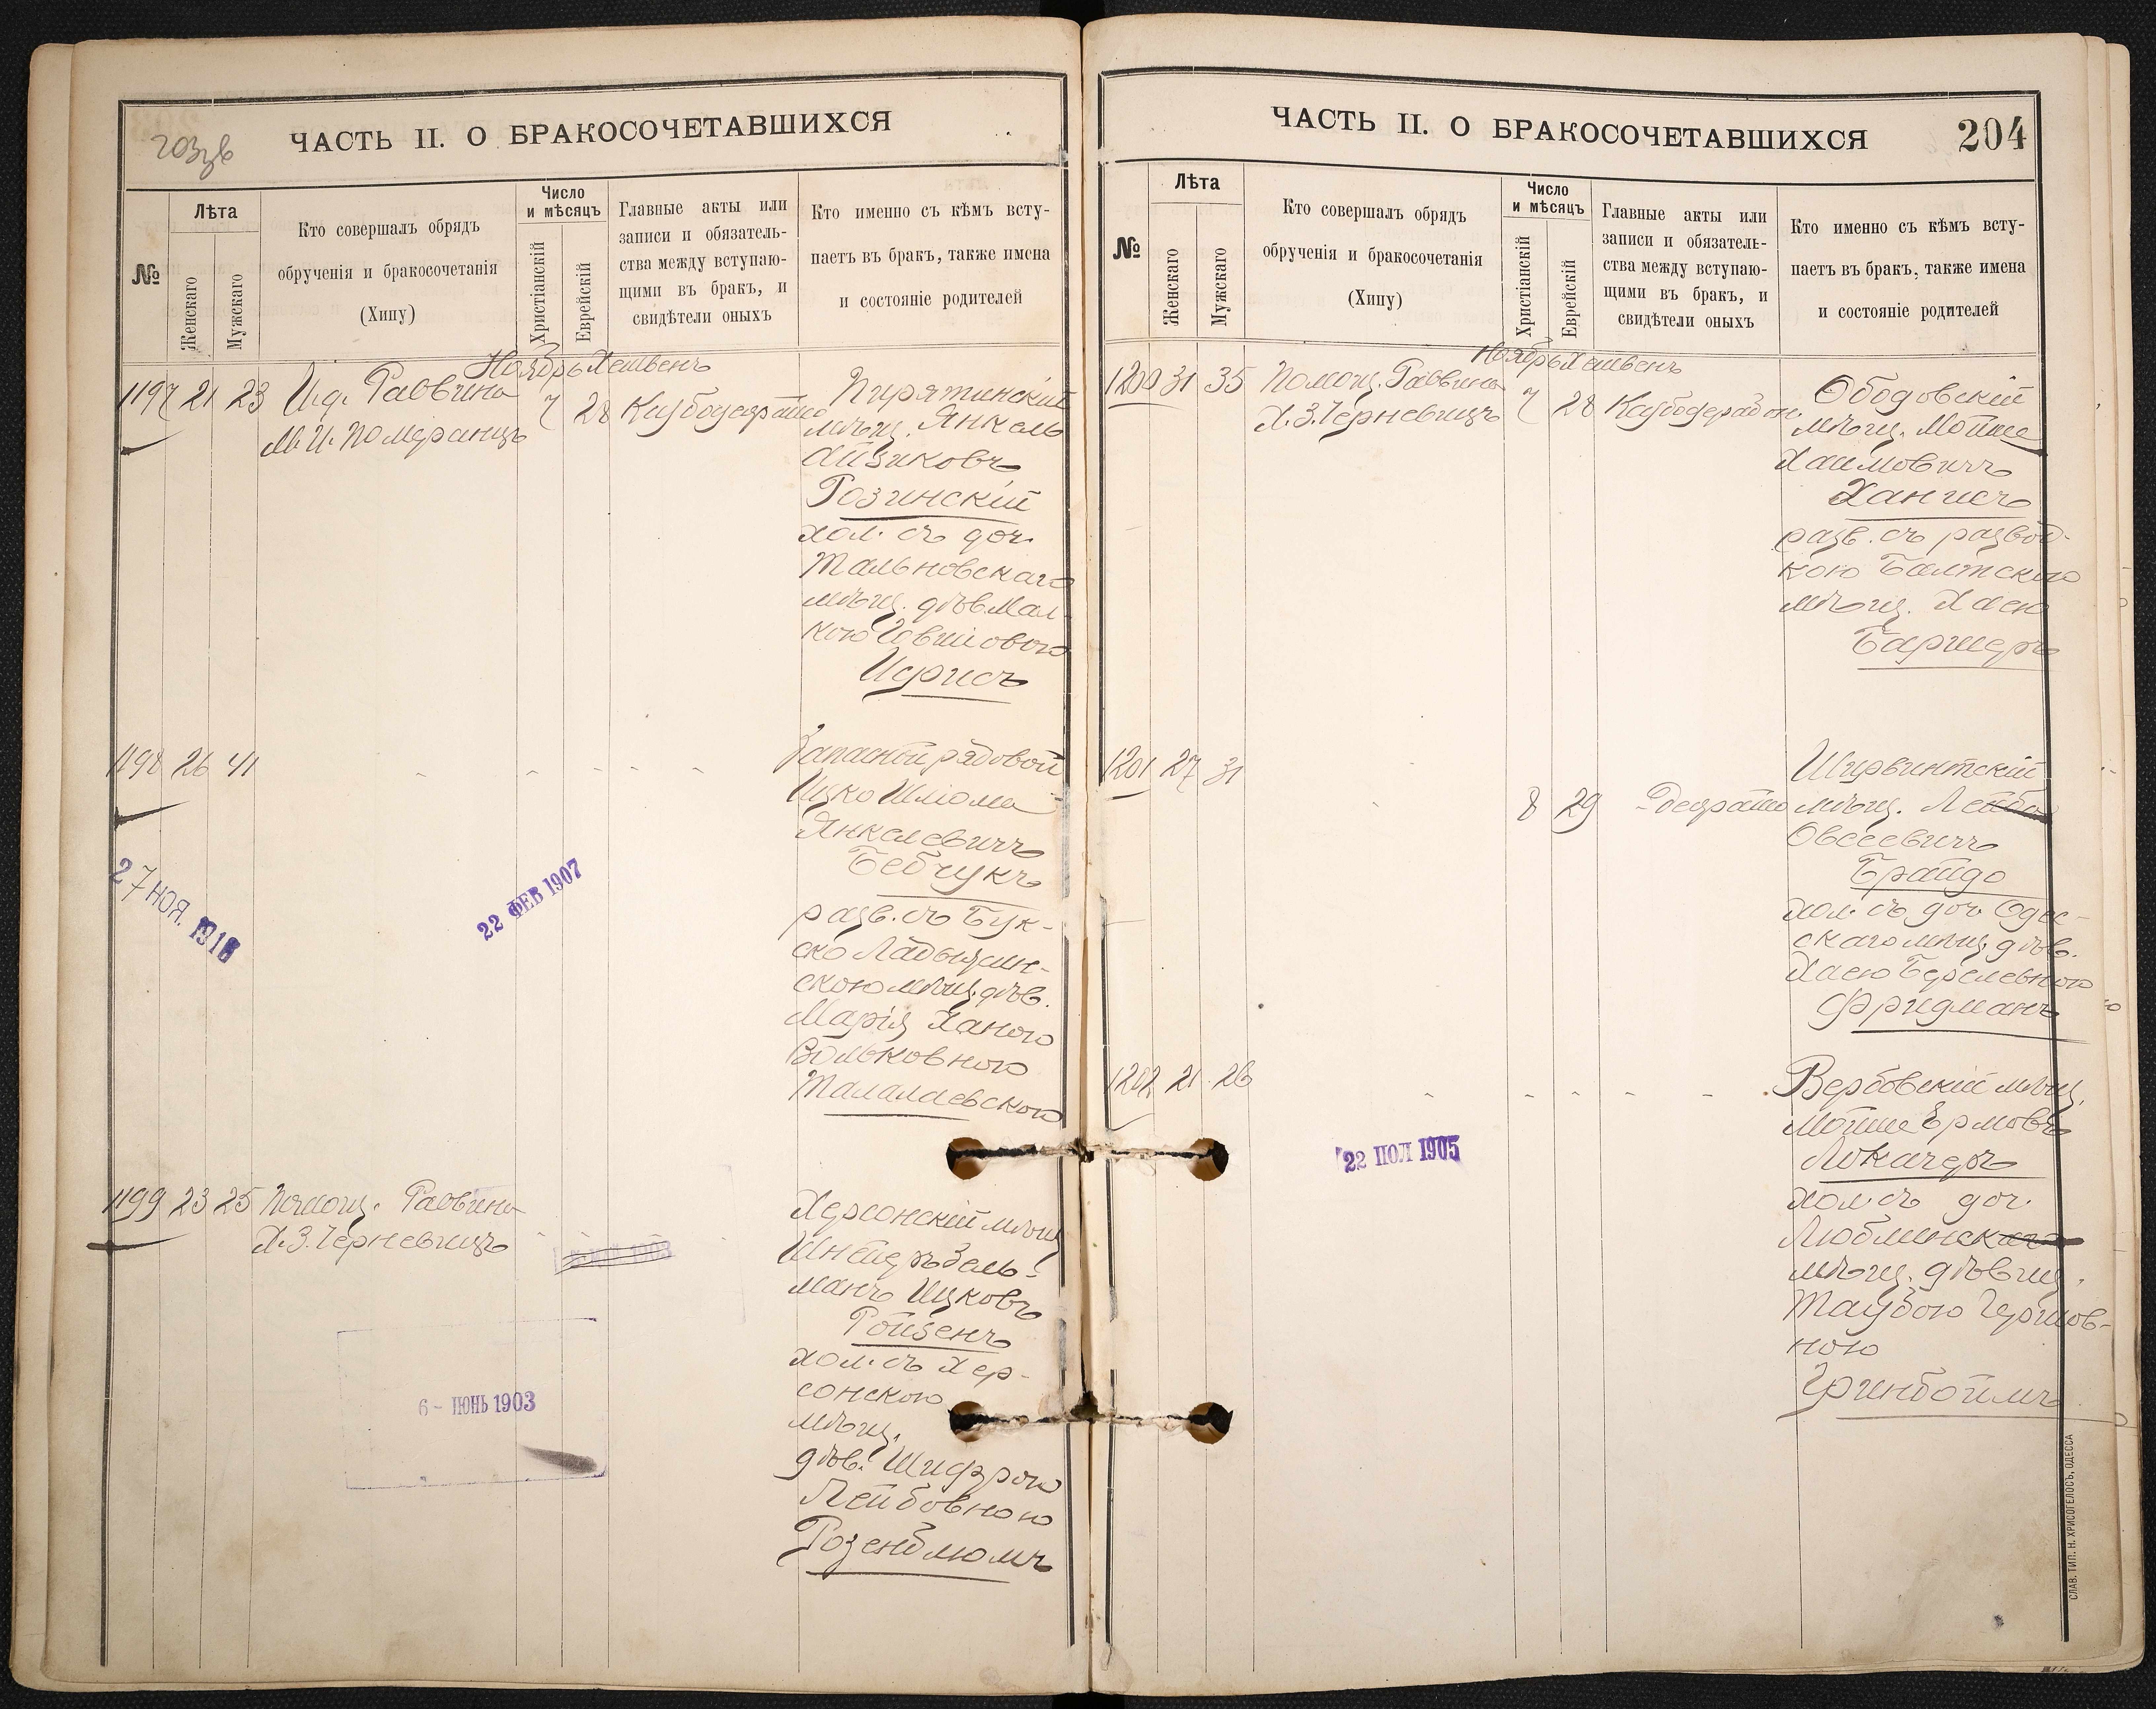 203ув
ЧАСТЬ II. О БРАКОСОЧЕТАВШИХСЯ
№
Лѣта
Женскаго
Мужскаго
Кто совершалъ обрядъ
обрученія и бракосочетанія
(Хипу)
Число
и мѣсяцъ
Христіанскій
Еврейскій
Главные акты или
записи и обязатель-
ства между вступаю-
щими въ бракъ, и
свидѣтели оныхъ
Кто именно съ кѣмъ всту-
паетъ въ бракъ, также имена
и состояніе родителей
Ноябрь Хешвень
1197 21 23 И.д. Раввина 7 28
М.И. Померанцъ
Пирятинскій
мѣщ. Янкель
Айзиковъ
Розинскій
хол. съ доч.
Тальновскаго
мѣщ. дѣв. Мал-
кою Іовшовою
Ицрисъ
1198 26 41
Запасной рядовой
Ицко Шліома
Янкелевичъ
Бебчукъ
разв. съ Бук-
ско Ладыжин-
скою мѣщ. дѣв.
Марія Ханою
Вольковною
Талалаевскою
27 НОЯ. 191
22 ФЕВ 1907
1199 23 25 Помощ. Раввина
Х.З. Черневицъ
1903
Херсонскій мѣщ
Шнееръ Заль-
манъ Ицковъ
Ройзенъ
хол. съ Хер-
сонскою
мѣщ.
дѣв. Шифрою
Лейбовною
Розенблюмъ
6 - ІЮНЬ 1903
ЧАСТЬ II. О БРАКОСОЧЕТАВШИХСЯ
204
№
Лѣта
Женскаго
Мужскаго
Кто совершалъ обрядъ
обрученія и бракосочетанія
(Хипу)
Число
и мѣсяцъ
Христіанскій
Еврейскій
Главные акты или
записи и обязатель-
ства между вступаю-
щими въ бракъ, и
свидѣтели оныхъ
Кто именно съ кѣмъ всту-
паетъ въ бракъ, также имена
и состояніе родителей
Ноябрь Хешвень
1200 31 35 Помощ. Раввина 7 28
Х.З. Черневицъ
Ободовскій
мѣщ. Мойше
Хаимовичъ
Ханисъ
разв. съ развод-
кою Балтскою
мѣщ. Хаею
Баршеръ
1201 27 31
8 29
Ширвинтскій
мѣщ. Лейба
Овсеевичъ
Брайдо
хол. съ доч. Одес-
скаго мѣщ. дѣв.
Хаею Берелевною
Фридманъ
1202 21 26
Вербовскій мѣщ.
Мойше Ермовъ
Локачеръ
хол. съ доч.
Люблинскаго
мѣщ. дѣвиц.
Таубою Гершов-
ною
Гринбоймъ
22 ІЮЛ 1905
СЛАВ. ТИП. Н. ХРИСОГЕЛОСЪ, ОДЕССА